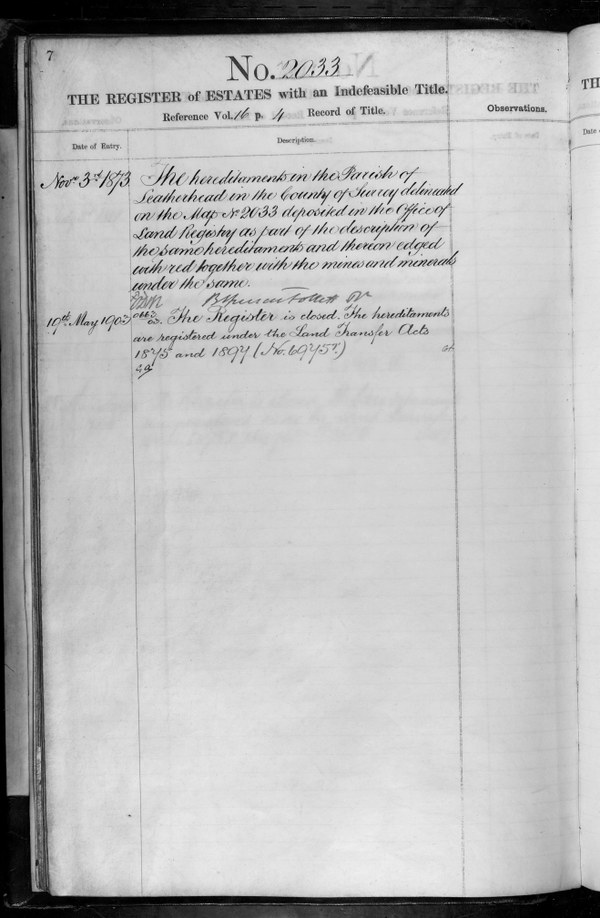 7
No. 2033
THE REGISTER of ESTATES with an Indefeasible Title.
Reference Vol. 16 p. 4 Record of Title.
Observations.
Date of Entry.
Description.
Novr 3rd 1873.
The hereditaments in the Parish of
Leatherhead in the County of Surrey delineated
on the Map No 2033 deposited in the Office of
Land Registry as part of the description of
the same hereditaments and thereon edged
with red together with the mines and minerals
under the same.
Follett
19th May 1903
The Register is closed. The hereditaments
are registered under the Land Transfer Acts
1875 and 1897 (No. 6975.)
TH
Date